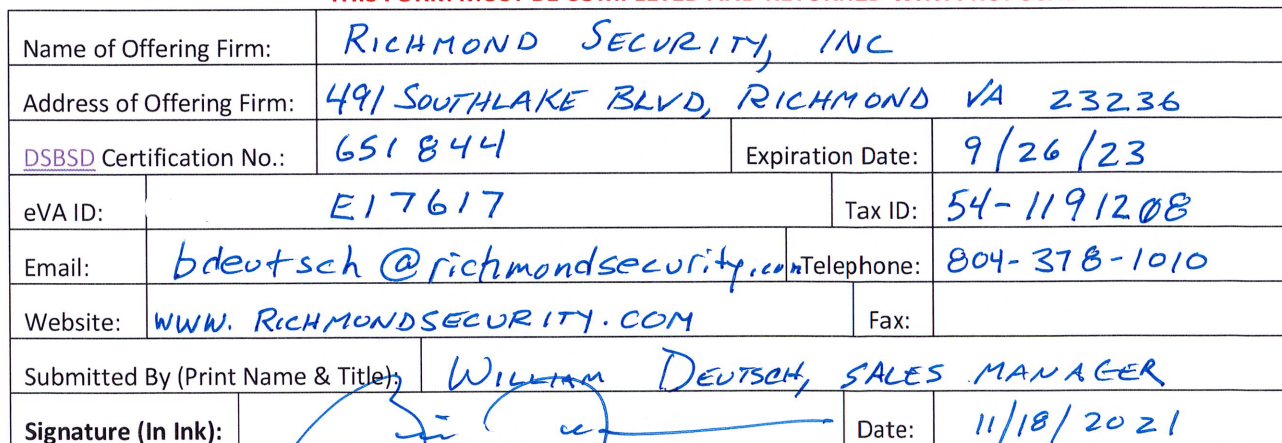 THIS FORM MUST BE COMPLETED AND RETURNED WITH PROPOSAL
Name of Offering Firm: RICHMOND SECURITY, INC
Address of Offering Firm: 491 SOUTHLAKE BLVD, RICHMOND VA 23236
DSBSD Certification No.: 651844 Expiration Date: 9/26/23
eVA ID: E17617 Tax ID: 54-1191208
Email: bdeutsch@richmondsecurity.com Telephone: 804-378-1010
Website: WWW.RICHMONDSECURITY.COM Fax:
Submitted By (Print Name & Title): WILLIAM DEUTSCH, SALES MANAGER
Signature (In Ink): Date: 11/18/2021